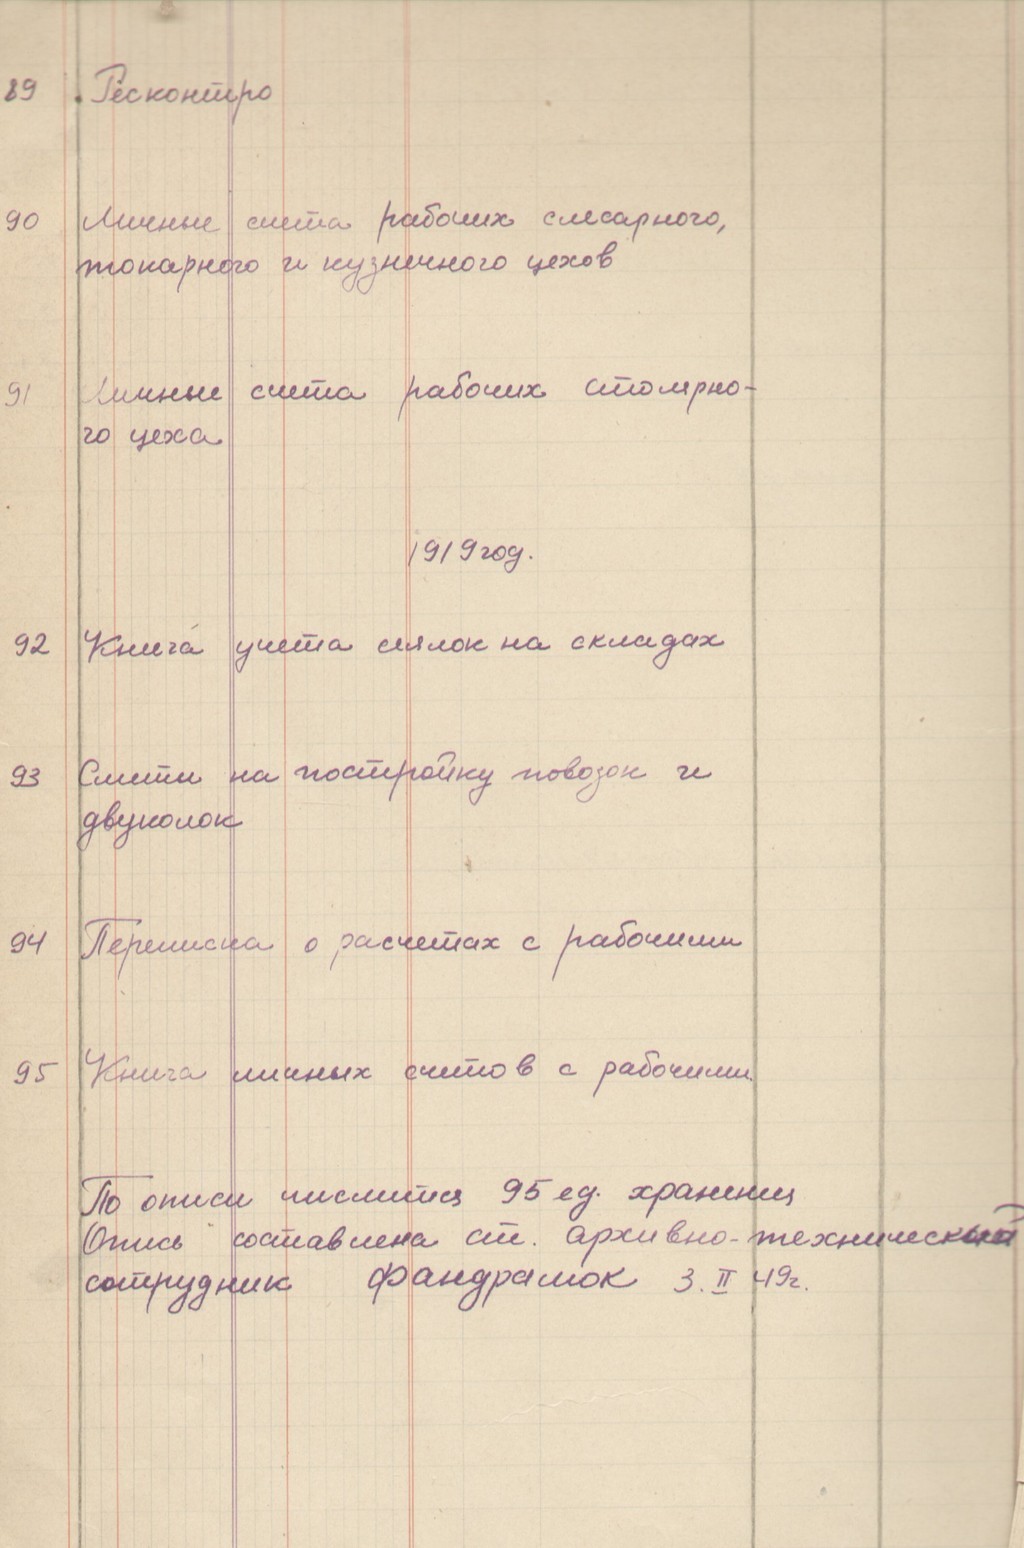 89 Ресконтро
90 Личные счета рабочих слесарного,
токарного и кузнечного цехов
91 Личные счета рабочих столярно-
го цеха
1919 год.
92 Книга учета сеялок на складах
93 Сметы на постройку повозок и
двуколок
94 Переписка о расчетах с рабочими
95 Книга личных счетов с рабочими.
По описи числится 95 ед. хранениц
Опись составлена ст. архивно-технический
сотрудник Фандралюк 3. II 49г.